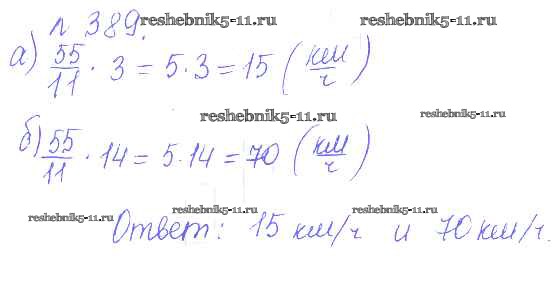 № 389. reshebnik5-11.ru
а) 55/11 · 3 = 5·3 = 15 (км/ч)
reshebnik5-11.ru reshebnik5-11.ru
б) 55/11 · 14 = 5·14 = 70 (км/ч)
reshebnik5-11.ru reshebnik5-11.ru reshebnik5-11.ru
Ответ: 15 км/ч и 70 км/ч.